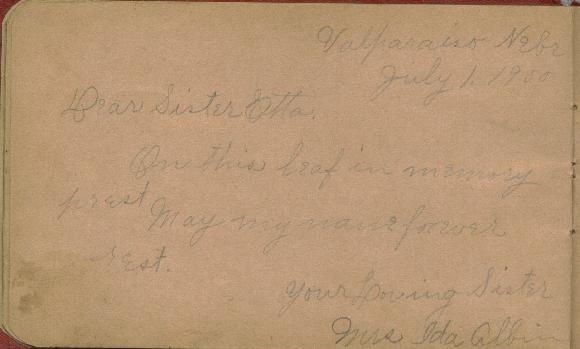 Valparaiso Nebr
July 1. 1900
Dear Sister Etta.
On this leaf in memory
prest
May my name forever
rest.
Your Loving Sister
Mrs Ida Albin